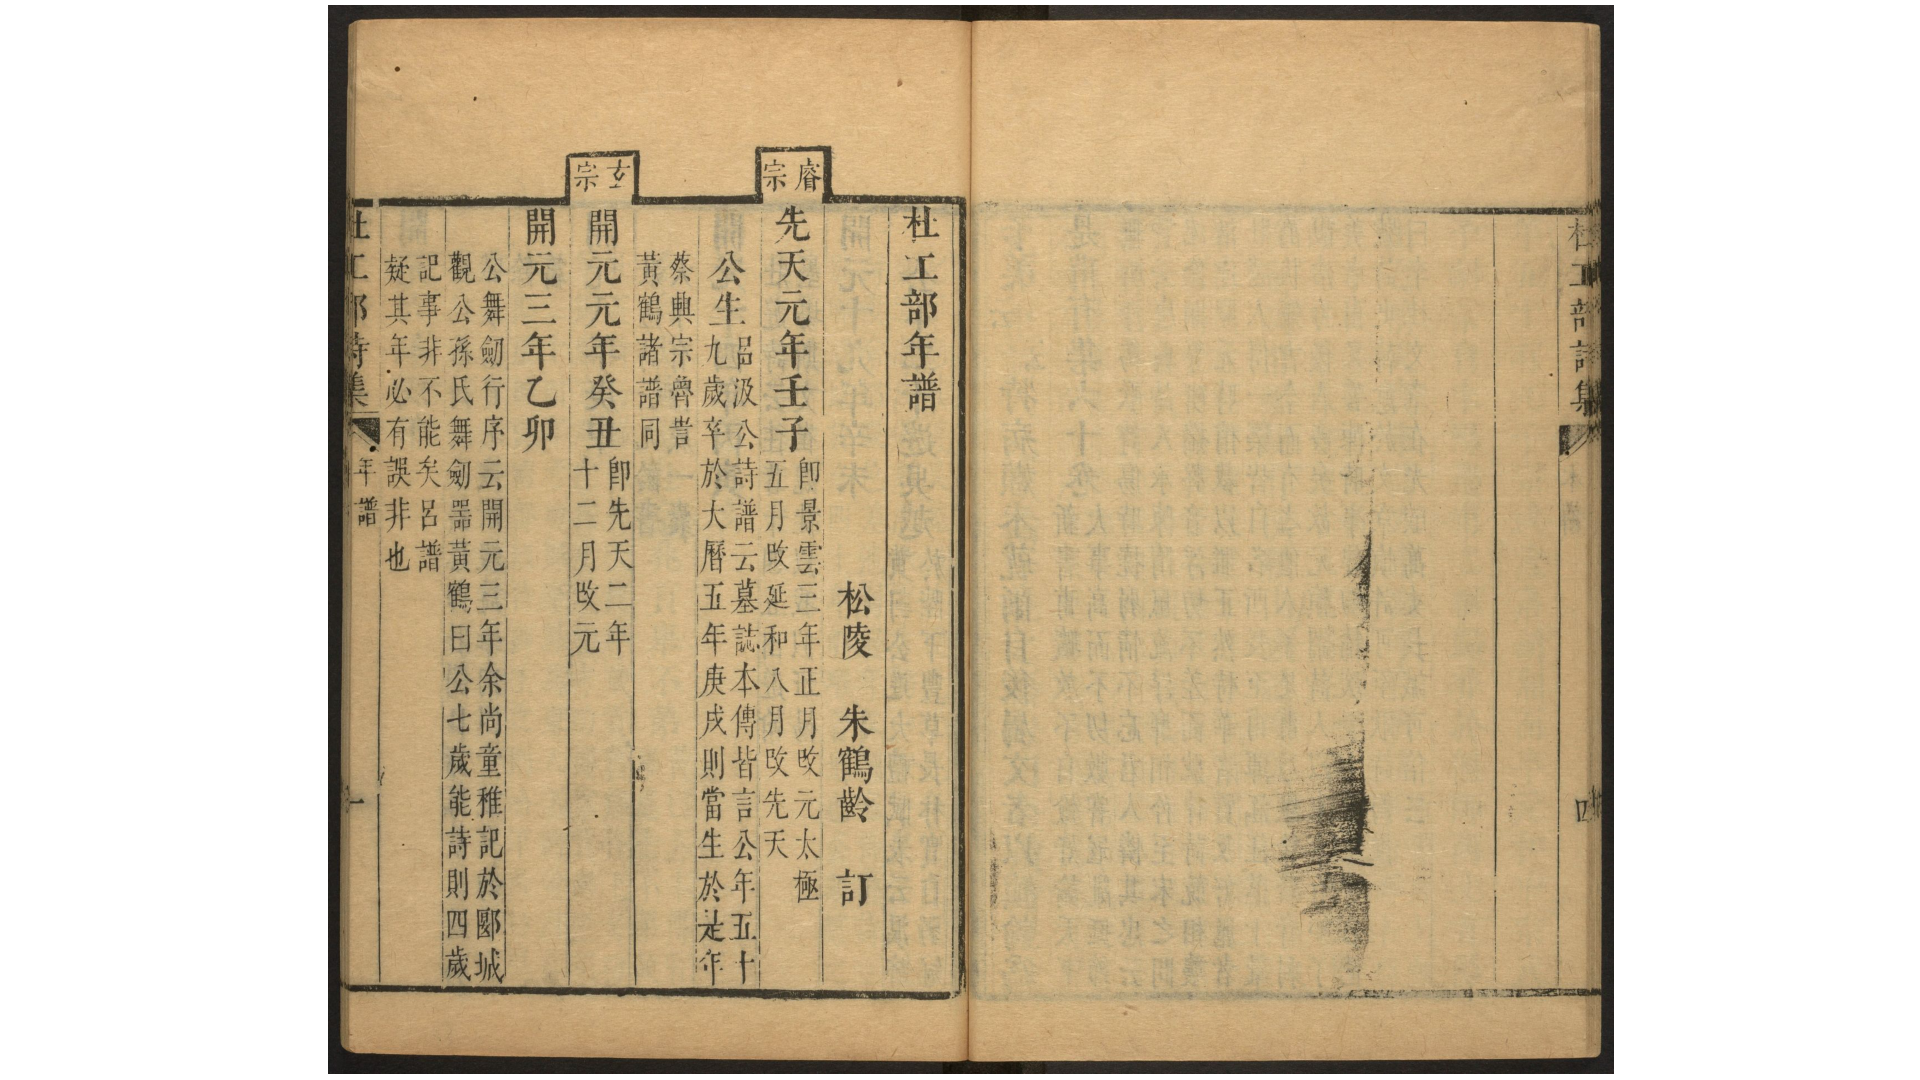 杜工部詩集
四
杜工部年譜
松陵　朱鶴齡　訂
睿宗
先天元年壬子
卽景雲三年正月攺元太極
五月攺延和八月攺先天
公生
呂汲公詩譜云墓誌本傳皆言公年五十
九歲卒於大曆五年庚戌則當生於是年
蔡興宗魯訔
黃鶴諸譜同
玄宗
開元元年癸丑
卽先天二年
十二月攺元
開元三年乙卯
公舞劒行序云開元三年余尚童稚記於郾城
觀公孫氏舞劒器黃鶴曰公七歲能詩則四歲
記事非不能矣呂譜
疑其年必有誤非也
杜工部詩集
年譜
一